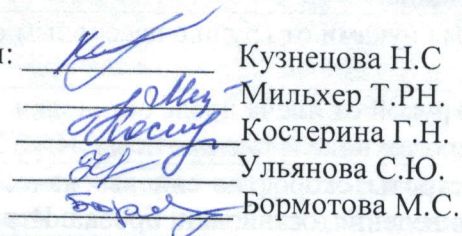 : Кузнецова Н.С
Мильхер Т.РН.
Костерина Г.Н.
Ульянова С.Ю.
Бормотова М.С.